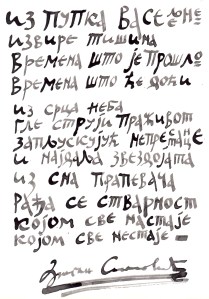 из пупка васелоне
извире тишина
времена што је прошло
времена што ће доћи
из срца неба
где струји праживот
запљускујући непрестане
и најдаља звездојата
из сна прапевача
рађа се стварност
којом све настаје
којом све нестаје